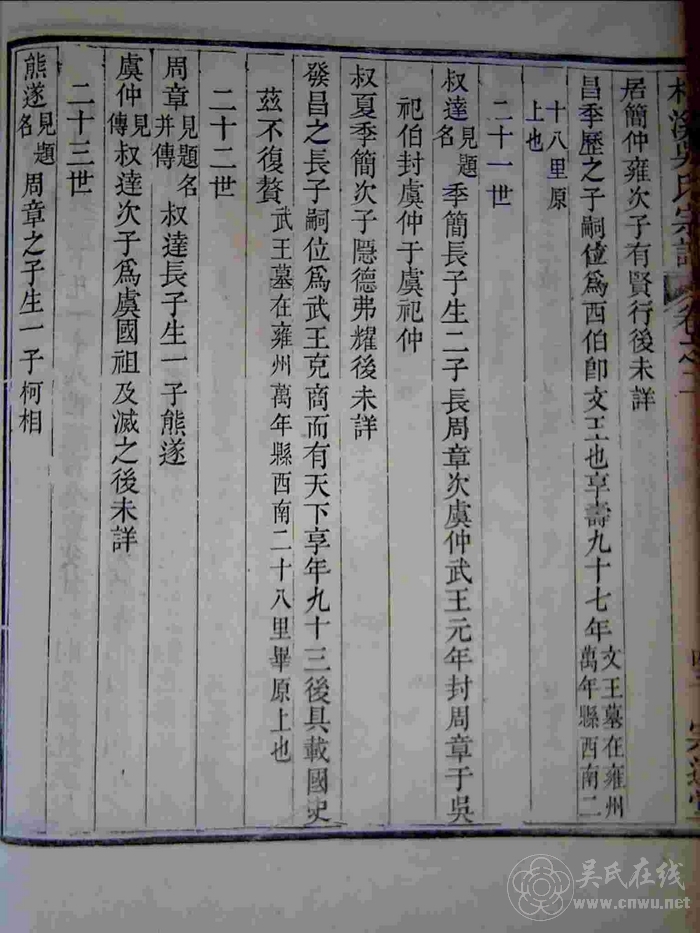 吳氏宗譜
居簡仲雍次子有賢行後未詳
昌季歷之子嗣位爲西伯卽文王也享壽九十七年文王墓在雍州萬年縣西南二
十八里原上也
二十一世
叔達見題名季簡長子生二子長周章次虞仲武王元年封周章于吳
祀伯封虞仲于虞祀仲
叔夏季簡次子隠德弗耀後未詳
發昌之長子嗣位爲武王克商而有天下享年九十三後具載國史
茲不復贅武王墓在雍州萬年縣西南二十八里畢原上也
二十二世
周章見題名并傳叔達長子生一子熊遂
虞仲見傳叔達次子爲虞國祖及滅之後未詳
二十三世
熊遂見題名周章之子生一子柯相
吴氏在线
www.cnwu.net